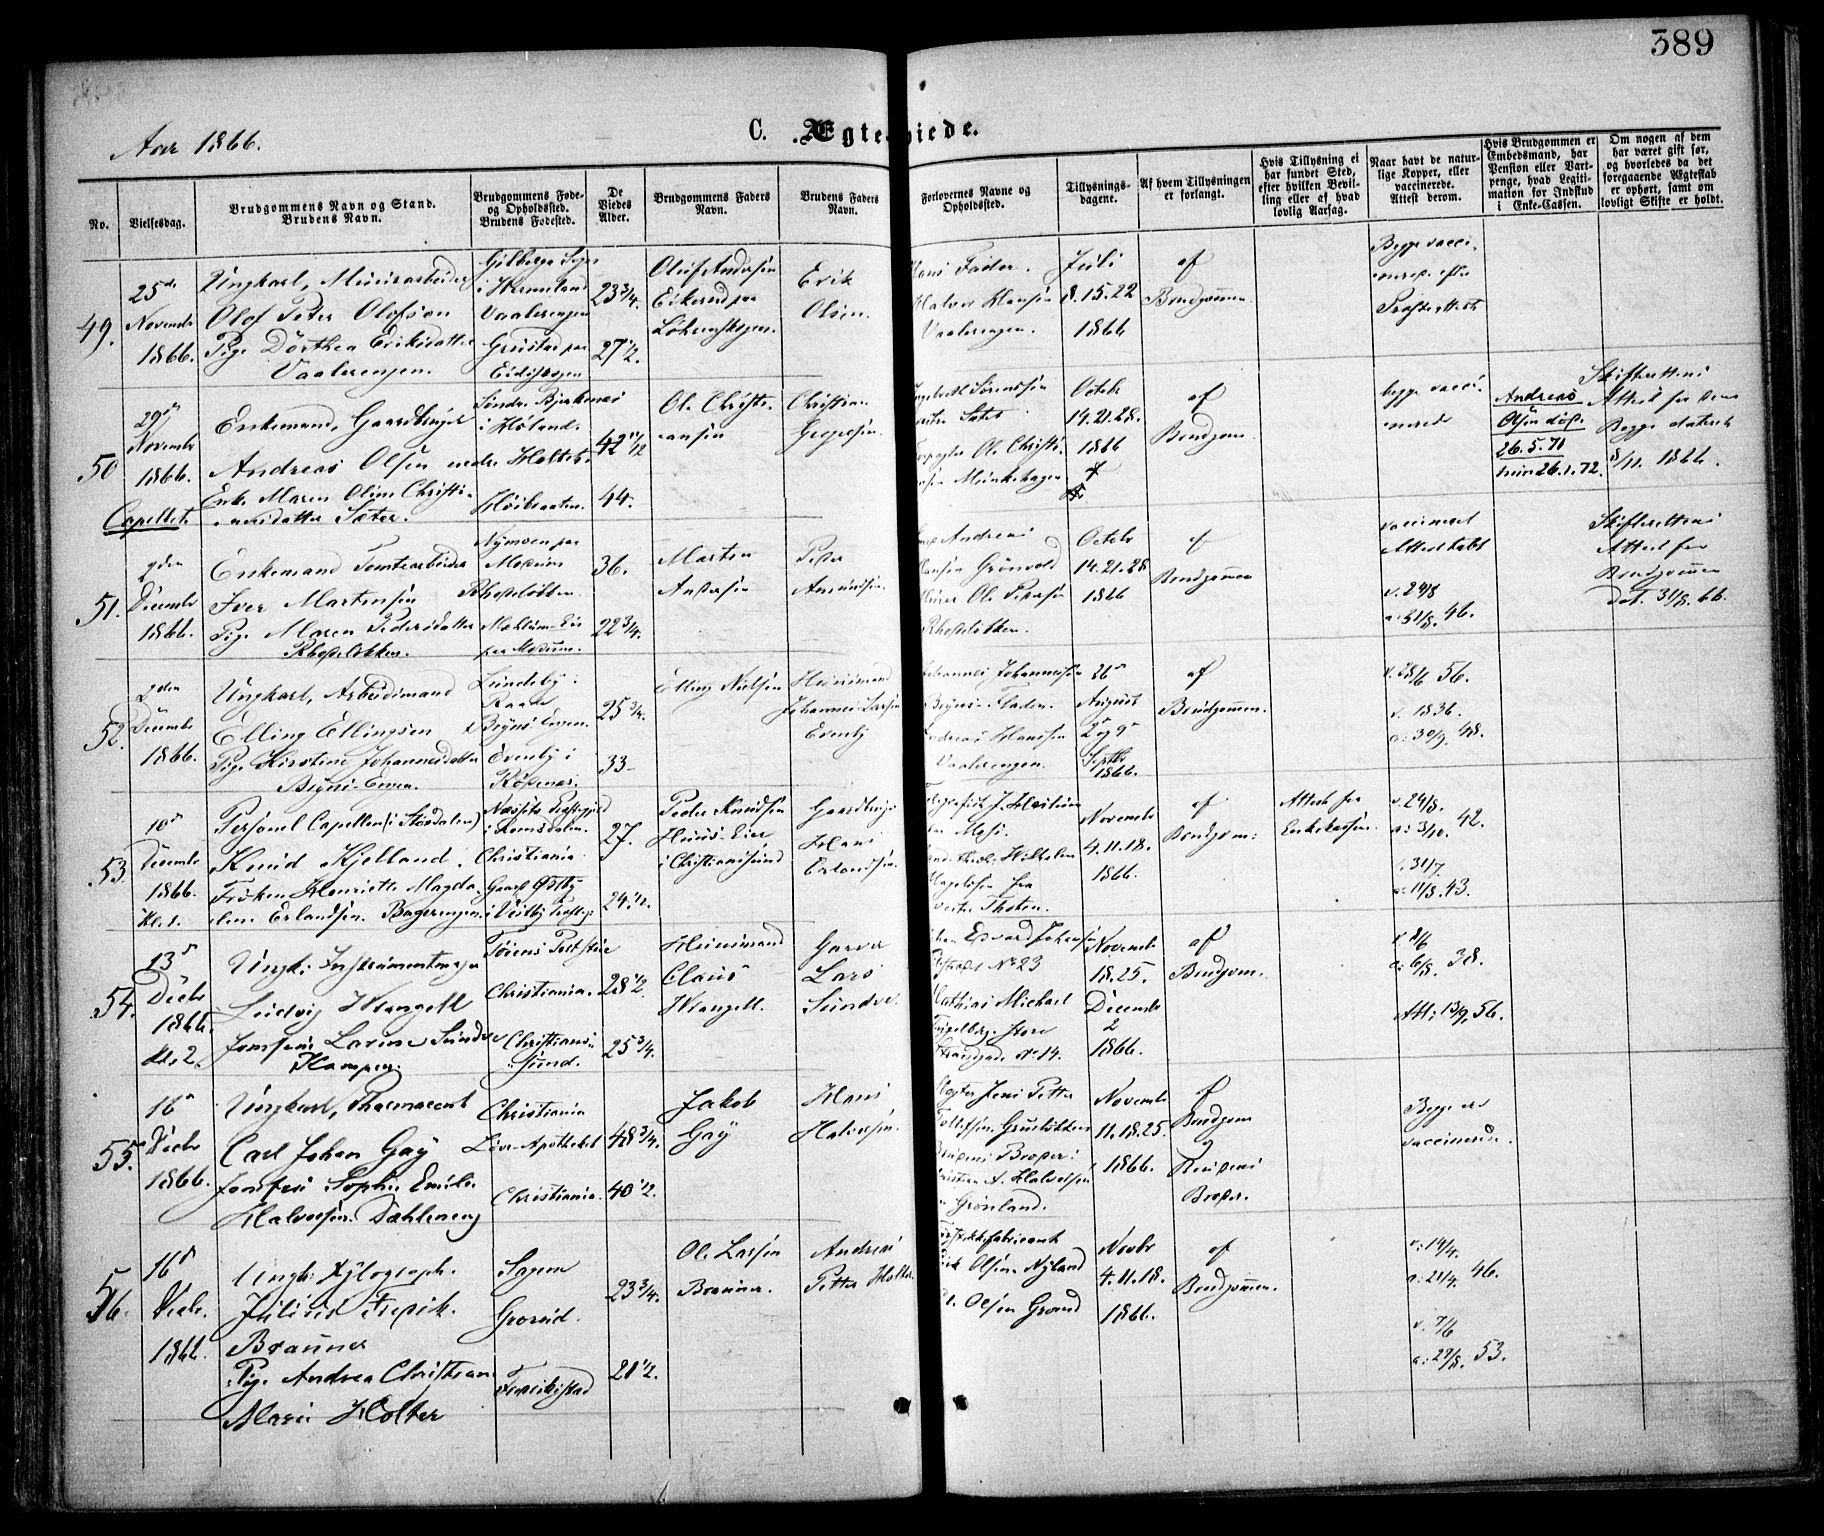 389
Aar 1866.
C. Ægteviede.
No.
Vielsesdag.
Brudgommens Navn og Stand.
Brudens Navn.
Brudgommens Føde-
og Opholdssted.
Brudens Fødested.
De
Viedes
Alder.
Brudgommens Faders
Navn.
Brudens Faders
Navn.
Forlovernes Navne og
Opholdssted.
Tillysnings-
dagene.
Af hvem Tillysningen
er forlangt.
Hvis Tillysning ei
har fundet Sted,
efter hvilken Bevil-
ling eller af hvad
lovlig Aarsag.
Naar havt de natur-
lige Kopper, eller
vaccinerede.
Attest derom.
Hvis Brudgommen er
Embedsmand, har
Pension eller Vart-
penge, hvad Legiti-
mation for Indskud
i Enke-Cassen.
Om nogen af dem
har været gift før,
og hvorledes da det
foregaaende Ægteskab
er ophørt, samt om
lovligt Skifte er holdt.
49.
25de
Novembr
1866.
Ungkarl, Murarbeider
Olof Peter Olofson
Pige Dorthea Eriksdatter
Vaalerengen.
Gilberga Sogn
i Wermeland
Vaalerengen
Grustad paa
Eidskogen
23 3/4.
27 1/2.
Oluf Andersen
Løkenskogen.
Erik
Olsen.
Halvor Hansen
Vaalerengen.
Juli
8. 15. 22
1866
af
Brudgommen
Begge vacci-
nered. efter
50
Capellet.
29de
Novembr
1866.
Enkemand, Gaardbruger
Andreas Olsen nedre Holtet.
Enke Maren Oline Christi-
ansdatter Sæter.
Søndre Bjerkenæs
i Høland.
44.
Ole Christi-
ansen
Christian
Gregersen.
Ole Christi-
Munkehagen
Octobr
14. 21. 28.
1866
af
Brudgom.
begge vacci-
nerede
Andreas
Olsen død
26.5.71
26.1.72.
Skifterettens
Attest fra dem
Begge dateret
8/11. 1866.
51.
2den
Decembr
1866.
Enkemand Tomtearbeider
Iver Martinsen
Pige Maren Pedersdatter
Rhodeløkken.
Nymoen paa
Modum
Rhodeløkken.
paa Modum.
36.
22 3/4.
Martin
Andersen
Peder
Amundsen.
Andreas
Hansen Grønvold
Ole Petersen
Rhodeløkken.
Octobr
14. 21. 28
1866
af
Brudgommen
vaccineret
v. 24/8
a: 31/8. 46.
Skifterettens
Attest fra
Brudgommen
dat. 31/8. 66.
52.
2den
Decembr
1866.
Ungkarl, Arbeidsmand
Elling Ellingsen
Pige Kirstine Johannesdatter
Bryns-Enga.
Lundeby i
Raade
Evenby i
Rødenæs.
25 3/4.
33
Elling Nielsen
Huusmand
Johannes Larsen
Evenby
Johannes Johannessen
Andreas Hansen
Vaalerengen.
26de
August
2 og 9de
Septbr
1866.
af
Brudgommen.
v. 28/6 56.
v. 1836.
a: 30/9. 48.
53.
10de
Decembr
1866.
Kl. 1.
Personel Capellan (i Størdalen)
Knud Kjelland.
Frøken Henriette Magda-
lene Erlandsen. Bageringen
i Romsdalen.
Christiania.
Gaard Østby
i Vestby Præstegj.
27.
24 1/2.
Peder Knudsen
Huus-Eier
i Christianssund
Gaardbruger
Hans
Erlandsen.
Wilhelm
fra
vestre Thoten.
Novembr
4. 11. 18.
1866.
af
Brudgom:
Attest fra
Enkekassen.
v. 24/8.
a: 3/10. 42.
v. 31/7
a: 11/8. 43.
54.
13de
Decbr
1866.
Kl. 2.
Ungk: Instrumentmager
Ludvig Wangell
Jomfru Lovine Sunde
Kampen.
Christiania.
Christians-
sund.
28 1/2
25 3/4.
Huusmand
Claus
Wangell.
Garver
Lars
Sunde.
Edvard Johansen
No 23
Mathias Michael
Engelberg. store
Strandgade No 14.
Novembr
18. 25.
Decembr
2
1866.
af
Brudgom.
v. 2/6
a: 6/8. 38.
Att: 13/9. 56.
55.
16de
Decbr
1866.
Ungkarl, Pharmaceut
Carl Johan Gay
Jomfru Sophie Emilie
Halvorsen. Dæhleneng
Christiania
Løve-Apotheket
Christiania.
48 3/4.
40 1/2.
Jakob
Gay
Hans
Halvorsen.
Jens Petter
Tollefsen. Grusløkken
Brudens Broder:
Christian A. Halvorsen
Grønland.
Novembr
11. 18. 25.
1866.
af
Brudgom
og
Brudens
Broder.
Begge ere
vaccinerede.
56.
16de
Decbr.
1866.
Ungk: Xylograph.
Julius Fredrik.
Braunner
Pige Andrea Christiane
Marie Holter
Sagene
Grorud.
Fredrikstad
23 3/4.
21 1/2.
Ole Larsen
Braunner.
Andreas
Petter Holter.
Olsen. Nyland
Olsen Grorud
Novbr
4. 11. 18.
1866.
af
Brudgommen.
v: 14/4.
a: 21/4. 46.
v. 7/6
a: 29/8. 53.